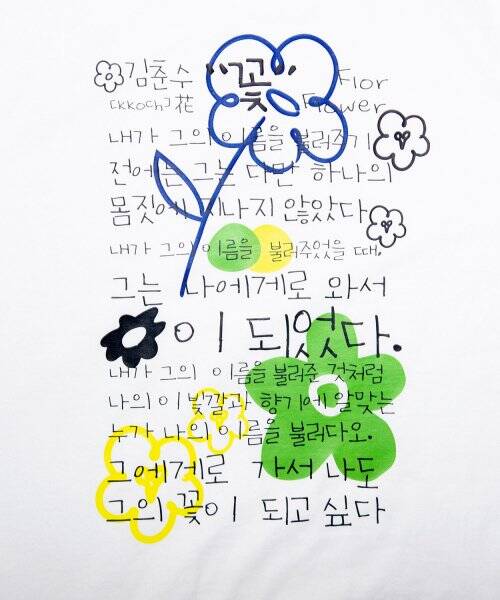 김춘수 "꽃" Flor
[kkoch] 花 Flower
내가 그의 이름을 불러주기
전에는 그는 다만 하나의
몸짓에 지나지 않았다
내가 그의 이름을 불러주었을 때,
그는 나에게로 와서
이 되었다.
내가 그의 이름을 불러준 것처럼
나의 이 빛깔과 향기에 알맞는
누가 나의 이름을 불러다오.
그에게로 가서 나도
그의 꽃이 되고 싶다